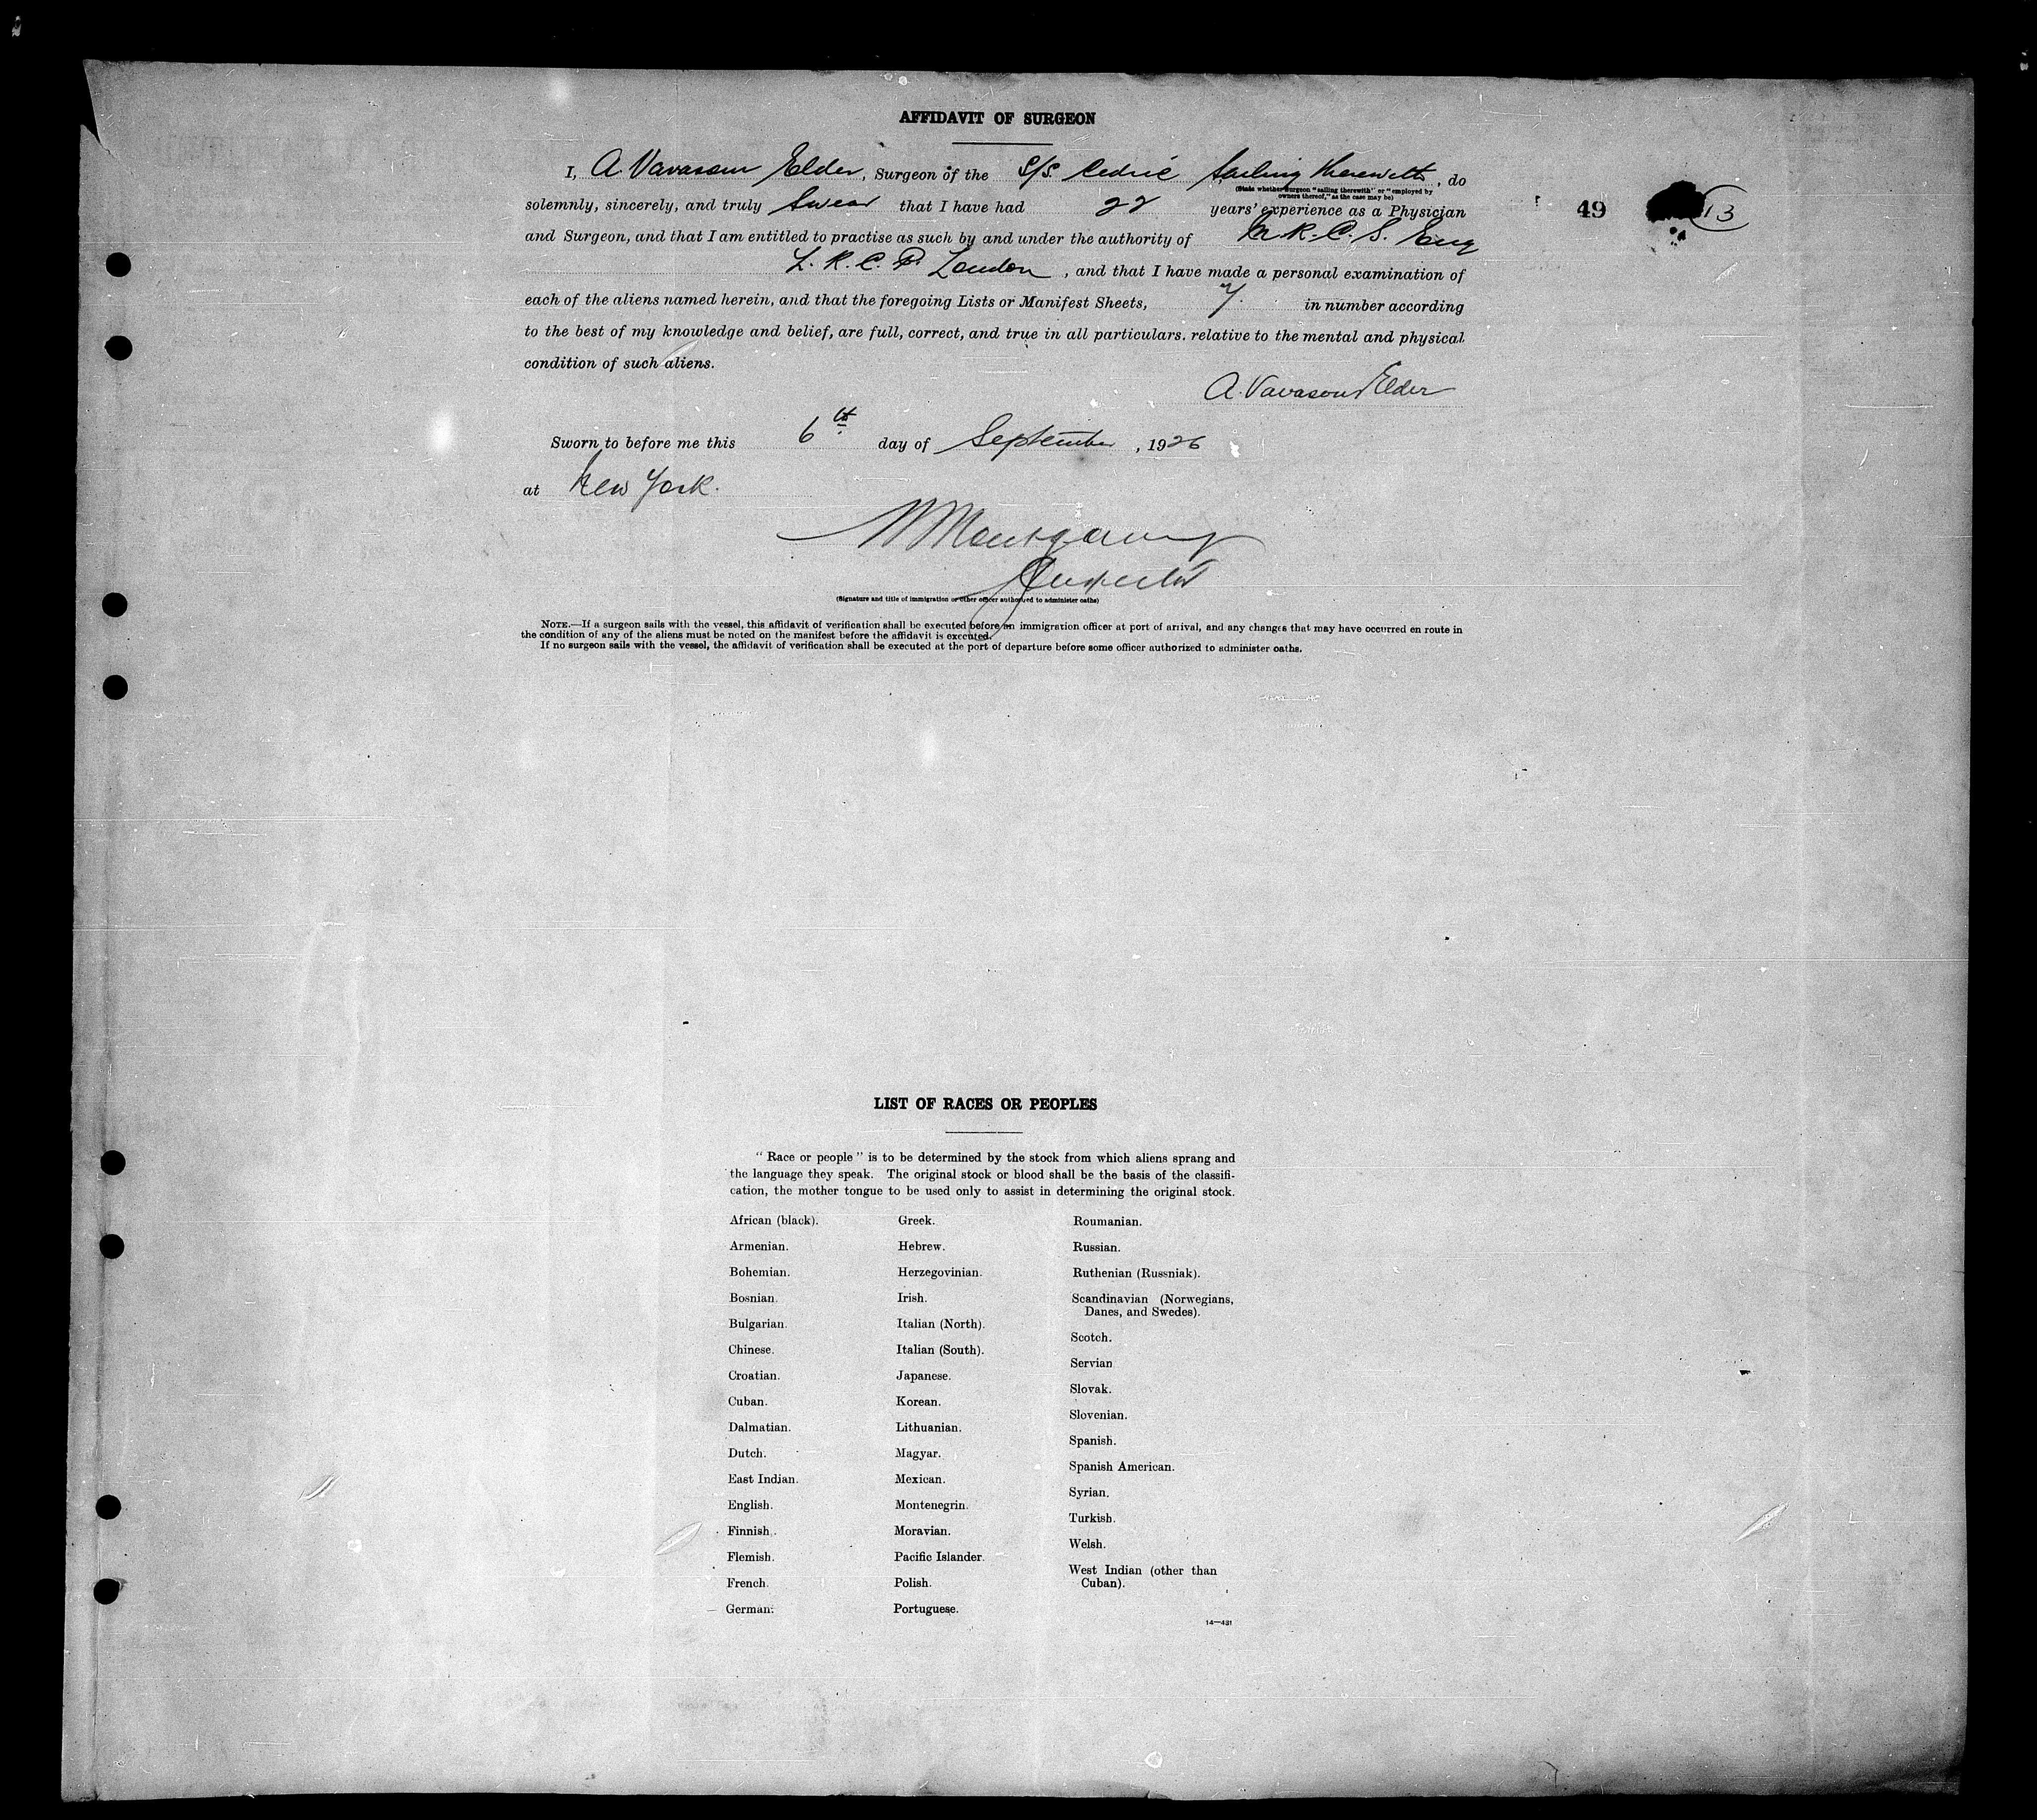 AFFIDAVIT OF SURGEON
I, A. Vavasour Elder, Surgeon of the S/S. Cedric Sailing therewith, do
(State whether Surgeon "sailing therewith" or "employed by
owners thereof," as the case may be)
solemnly, sincerely, and truly Swear that I have had 22 years' experience as a Physician
49 13
and Surgeon, and that I am entitled to practise as such by and under the authority of M.R.C.S. Eng
L.R.C.P. London, and that I have made a personal examination of
each of the aliens named herein, and that the foregoing Lists or Manifest Sheets, 7. in number according
to the best of my knowledge and belief, are full, correct, and true in all particulars. relative to the mental and physical
condition of such aliens.
A. Vavasour Elder
Sworn to before me this 6th day of September, 1926
at New York.
Montgomery
Inspector
(Signature and title of immigration or other officer authorized to administer oaths)
NOTE.—If a surgeon sails with the vessel, this affidavit of verification shall be executed before an immigration officer at port of arrival, and any changes that may have occurred en route in
the condition of any of the aliens must be noted on the manifest before the affidavit is executed.
If no surgeon sails with the vessel, the affidavit of verification shall be executed at the port of departure before some officer authorized to administer oaths.
LIST OF RACES OR PEOPLES
"Race or people" is to be determined by the stock from which aliens sprang and
the language they speak. The original stock or blood shall be the basis of the classifi-
cation, the mother tongue to be used only to assist in determining the original stock.
African (black).
Armenian.
Bohemian.
Bosnian.
Bulgarian.
Chinese.
Croatian.
Cuban.
Dalmatian.
Dutch.
East Indian.
English.
Finnish.
Flemish.
French.
German.
Greek.
Hebrew.
Herzegovinian.
Irish.
Italian (North).
Italian (South).
Japanese.
Korean.
Lithuanian.
Magyar.
Mexican.
Montenegrin.
Moravian.
Pacific Islander.
Polish.
Portuguese.
Roumanian.
Russian.
Ruthenian (Russniak).
Scandinavian (Norwegians,
Danes, and Swedes).
Scotch.
Servian
Slovak.
Slovenian.
Spanish.
Spanish American.
Syrian.
Turkish.
Welsh.
West Indian (other than
Cuban).
14—431